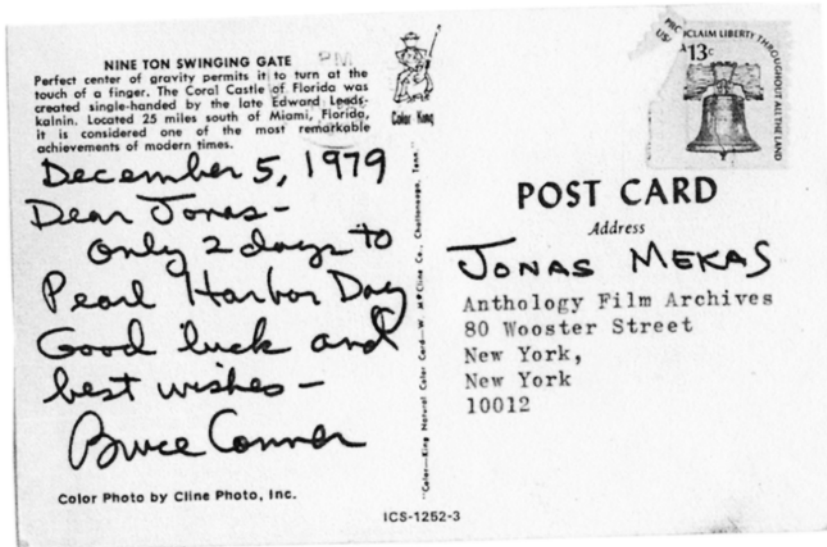 NINE TON SWINGING GATE
Perfect center of gravity permits it to turn at the
touch of a finger. The Coral Castle of Florida was
created single-handed by the late Edward Leeds-
kalnin. Located 25 miles south of Miami, Florida,
it is considered one of the most remarkable
achievements of modern times.
December 5, 1979
Dear Jonas-
only 2 days to
Pearl Harbor Day
Good luck and
best wishes-
Bruce Conner
Color Photo by Cline Photo, Inc.
PM
Color King
"Color-King Natural Color Card-W. M. Cline Co., Chattanooga, Tenn."
ICS-1252-3
PROCLAIM LIBERTY THROUGHOUT ALL THE LAND
13c
POST CARD
Address
JONAS MEKAS
Anthology Film Archives
80 Wooster Street
New York,
New York
10012